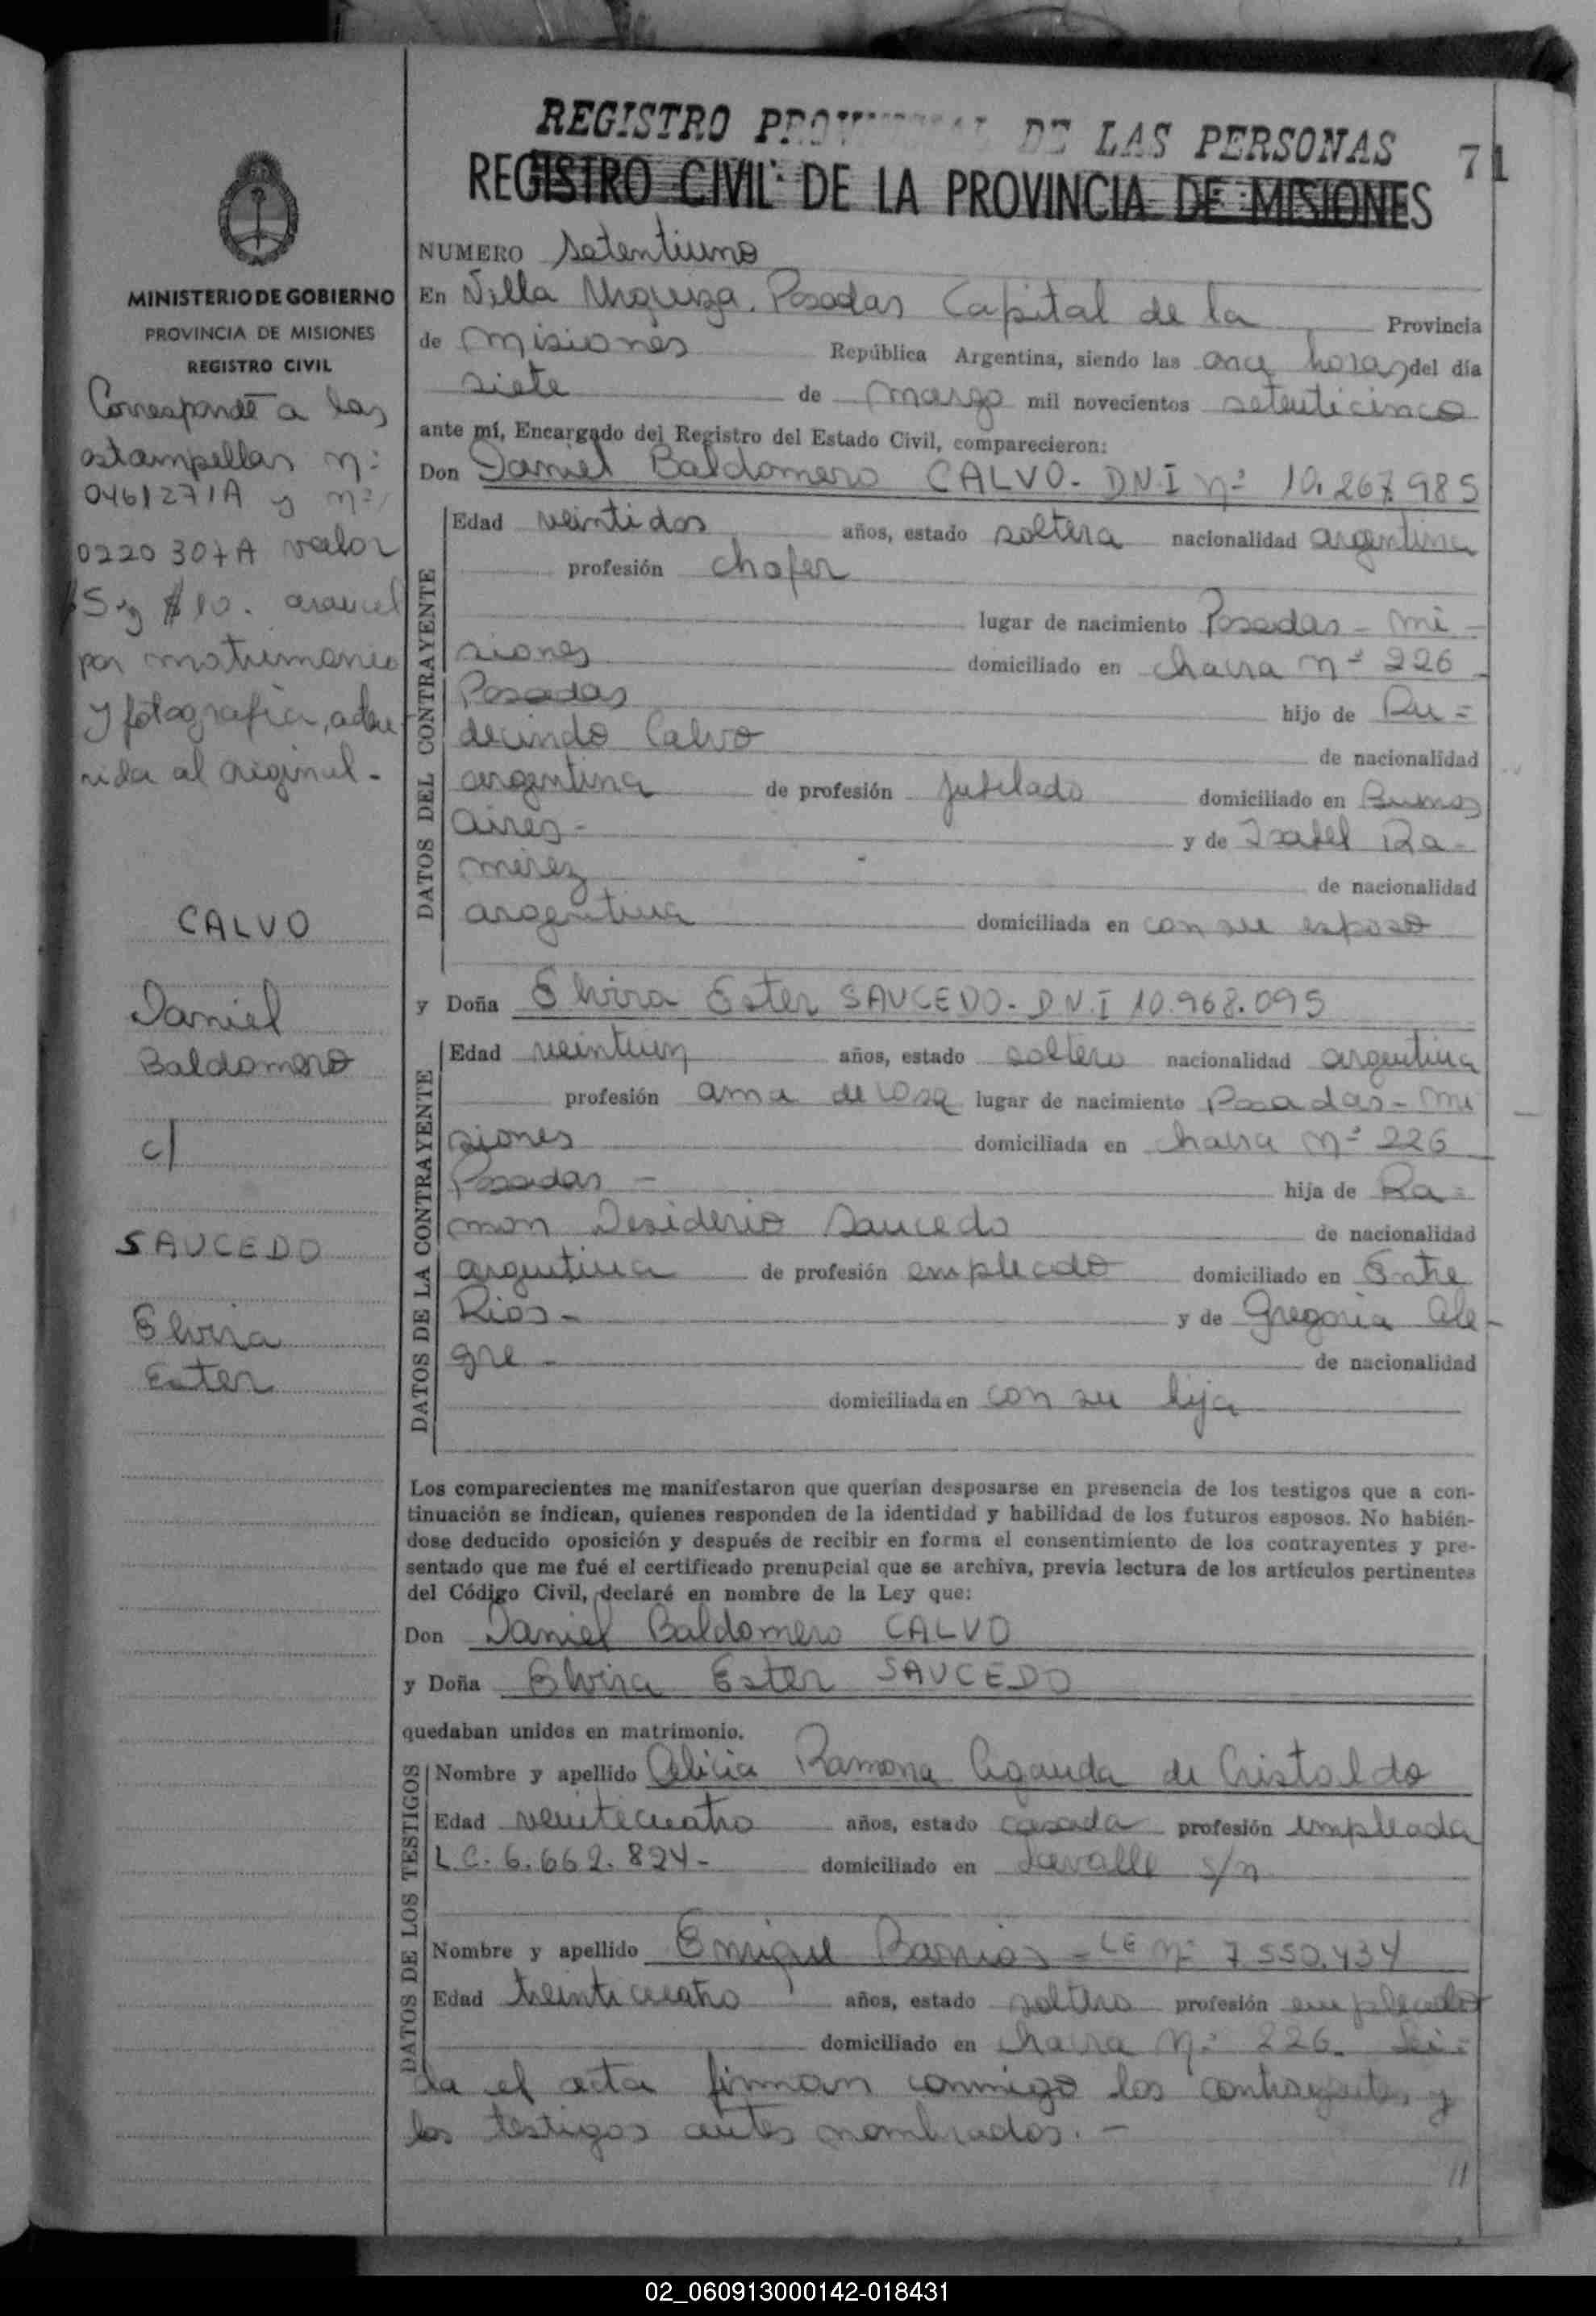 REGISTRO PROVINCIAL DE LAS PERSONAS
71
REGISTRO CIVIL DE LA PROVINCIA DE MISIONES
MINISTERIO DE GOBIERNO
PROVINCIA DE MISIONES
REGISTRO CIVIL
Corresponde a las
estampillas nº
0461271A y nº
0220307A valor
$5 y $10. arancel
por matrimonio
y fotografia, adhe
rida al original.-
CALVO
Daniel
Baldomero
c/
SAUCEDO
Elvira
Ester
NUMERO setentiuno
En Villa Urquiza. Posadas Capital de la Provincia
de Misiones República Argentina, siendo las once horas del día
siete de marzo mil novecientos setenticinco
ante mí, Encargado del Registro del Estado Civil, comparecieron:
Don Daniel Baldomero CALVO. DNI nº 10.267.985
DATOS DEL CONTRAYENTE
Edad veintidos años, estado soltero nacionalidad argentina
profesión chofer
lugar de nacimiento Posadas - Mi-
siones domiciliado en chacra nº 226
Posadas hijo de Ru=
decindo Calvo de nacionalidad
argentina de profesión jubilado domiciliado en Buenos
Aires- y de Isabel Ra-
mirez de nacionalidad
argentina domiciliada en con su esposo
y Doña Elvira Ester SAUCEDO- D.N.I 10.968.095
DATOS DE LA CONTRAYENTE
Edad veintiun años, estado soltera nacionalidad argentina
profesión ama de casa lugar de nacimiento Posadas - Mi
siones domiciliada en chacra nº 226
Posadas - hija de Ra=
mon Desiderio Saucedo de nacionalidad
argentina de profesión empleado domiciliado en Entre
Rios- y de Gregoria Ale-
gre - de nacionalidad
domiciliada en con su hija
Los comparecientes me manifestaron que querían desposarse en presencia de los testigos que a con-
tinuación se indican, quienes responden de la identidad y habilidad de los futuros esposos. No habién-
dose deducido oposición y después de recibir en forma el consentimiento de los contrayentes y pre-
sentado que me fué el certificado prenupcial que se archiva, previa lectura de los artículos pertinentes
del Código Civil, declaré en nombre de la Ley que:
Don Daniel Baldomero CALVO
y Doña Elvira Ester SAUCEDO
quedaban unidos en matrimonio.
DATOS DE LOS TESTIGOS
Nombre y apellido Alicia Ramona de Cristaldo
Edad veinticuatro años, estado casada profesión empleada
L.C. 6.662.824- domiciliado en Lavalle s/n
Nombre y apellido Enrique Barrios - LE nº 7550.434
Edad treinticuatro años, estado soltero profesión empleado
domiciliado en chacra nº 226. Lei=
da el acta firman conmigo los contrayentes y
los testigos antes nombrados. -
//
02_060913000142-018431